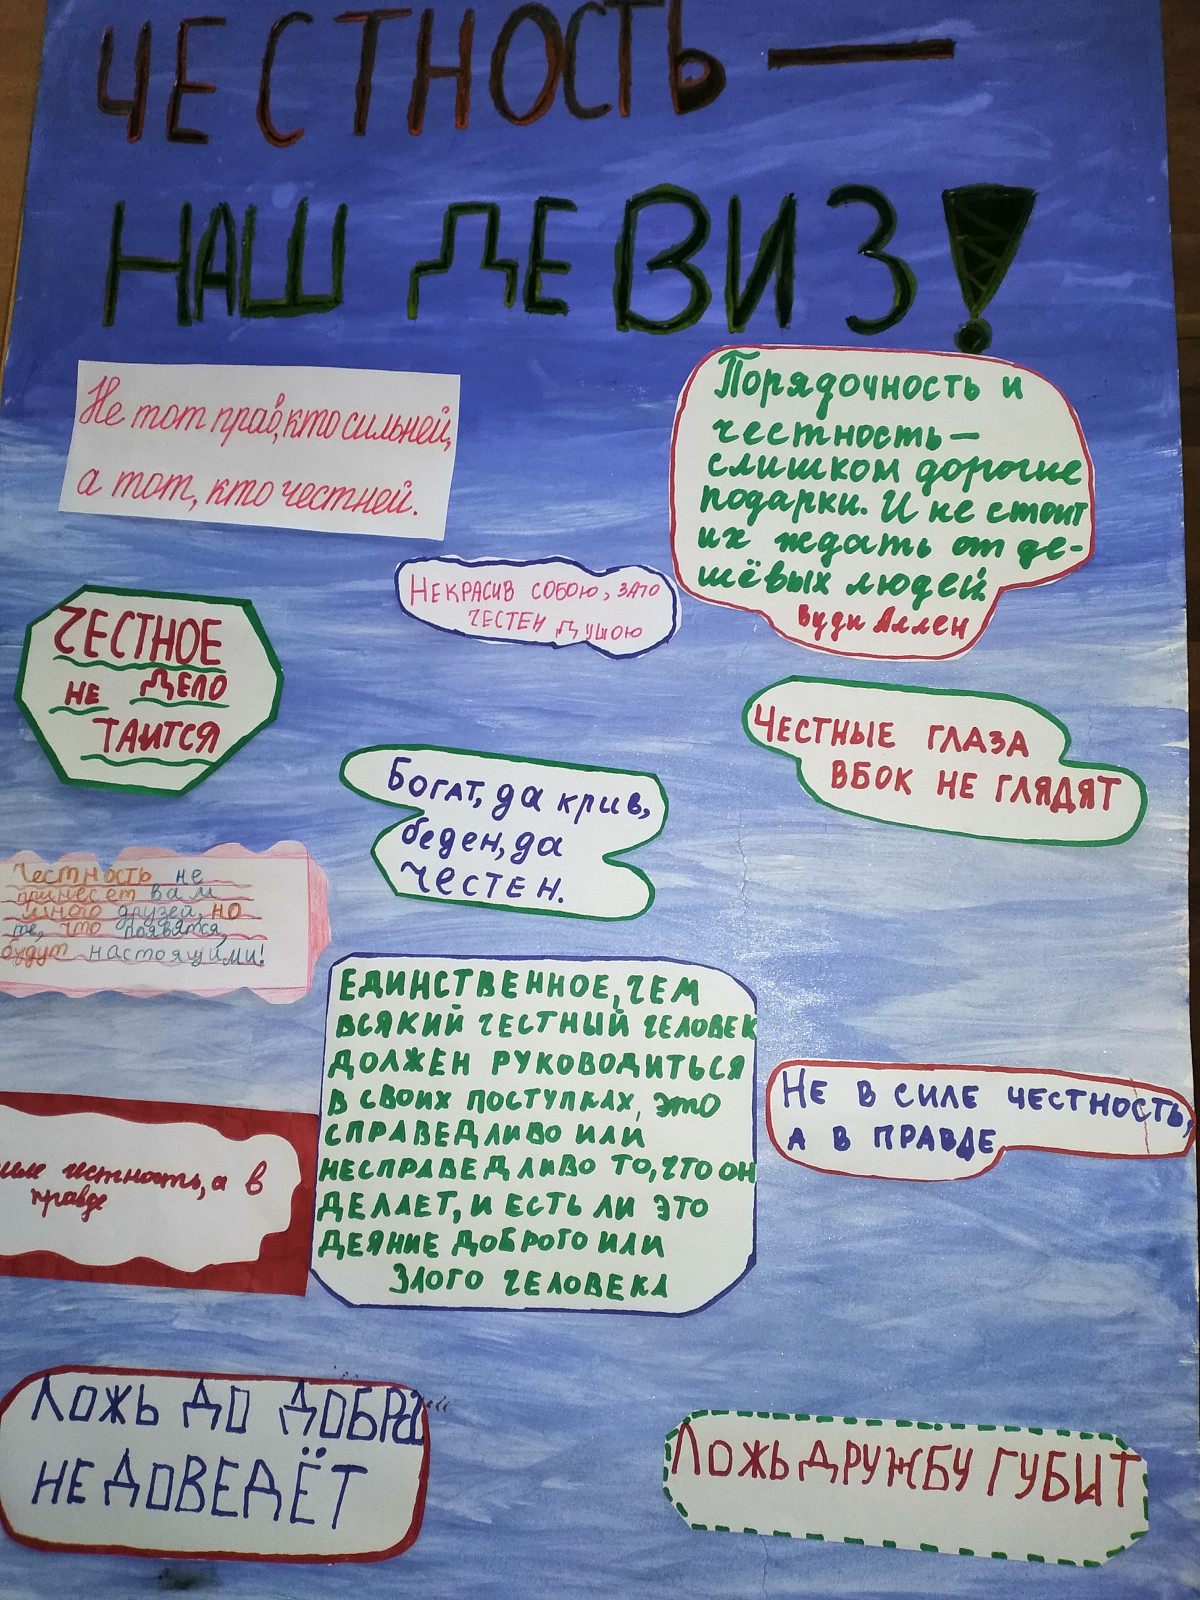 ЧЕСТНОСТЬ —
НАШ ДЕВИЗ!
Не тот прав, кто сильней,
а тот, кто честней.
Порядочность и
честность —
слишком дорогие
подарки. И не стоит
их ждать от де-
шёвых людей
Вуди Аллен
НЕКРАСИВ СОБОЮ, ЗАТО
ЧЕСТЕН ДУШОЮ
ЧЕСТНОЕ
НЕ ДЕЛО
ТАИТСЯ
ЧЕСТНЫЕ ГЛАЗА
ВБОК НЕ ГЛЯДЯТ
БОГАТ, да крив,
беден, да
ЧЕСТЕН.
Честность не
принесёт вам
много друзей, но
те, что появятся,
будут настоящими!
ЕДИНСТВЕННОЕ, ЧЕМ
ВСЯКИЙ ЧЕСТНЫЙ ЧЕЛОВЕК
ДОЛЖЕН РУКОВОДИТЬСЯ
В СВОИХ ПОСТУПКАХ, ЭТО
СПРАВЕДЛИВО ИЛИ
НЕСПРАВЕДЛИВО ТО, ЧТО ОН
ДЕЛАЕТ, И ЕСТЬ ЛИ ЭТО
ДЕЯНИЕ ДОБРОГО ИЛИ
ЗЛОГО ЧЕЛОВЕКА
НЕ В СИЛЕ ЧЕСТНОСТЬ,
А В ПРАВДЕ
честность, а в
правде
ЛОЖЬ ДО ДОБРА
НЕ ДОВЕДЁТ
ЛОЖЬ ДРУЖБУ ГУБИТ